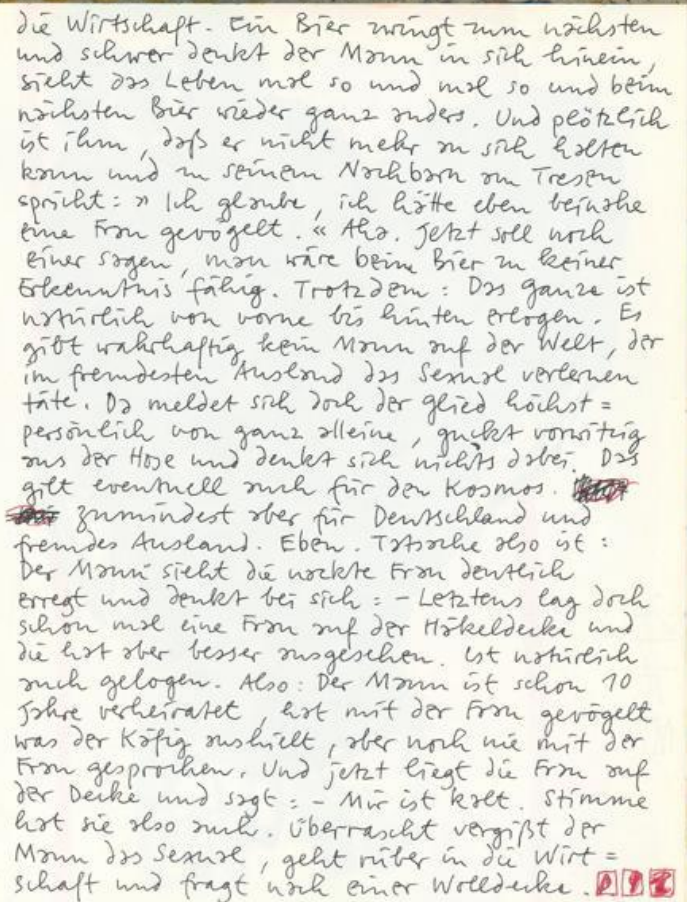 die Wirtschaft. Ein Bier zwingt zum nächsten
und schwer denkt der Mann in sich hinein,
sieht das Leben mal so und mal so und beim
nächsten Bier wieder ganz anders. Und plötzlich
ist ihm, daß er nicht mehr an sich halten
kann und zu seinem Nachbarn am Tresen
spricht: » Ich glaube, ich hätte eben beinahe
eine Frau gevögelt. « Aha. Jetzt soll noch
einer sagen, man wäre beim Bier zu keiner
Erkenntnis fähig. Trotzdem: Das ganze ist
natürlich von vorne bis hinten erlogen. Es
gibt wahrhaftig kein Mann auf der Welt, der
im fremdesten Ausland das Sexual verlernen
täte. Da meldet sich doch der Glied höchst=
persönlich von ganz alleine, guckt vorwitzig
aus der Hose und denkt sich nichts dabei. Das
gilt eventuell auch für den Kosmos.
Zumindest aber für Deutschland und
fremdes Ausland. Eben. Tatsache also ist:
Der Mann sieht die nackte Frau deutlich
erregt und denkt bei sich: - Letztens lag doch
schon mal eine Frau auf der Häkeldecke und
die hat aber besser ausgesehen. Ist natürlich
auch gelogen. Also: Der Mann ist schon 10
Jahre verheiratet, hat mit der Frau gevögelt
was der Käfig aushielt, aber noch nie mit der
Frau gesprochen. Und jetzt liegt die Frau auf
der Decke und sagt: - Mir ist kalt. Stimme
hat sie also auch. Überrascht vergißt der
Mann das Sexual, geht rüber in die Wirt=
schaft und fragt nach einer Wolldecke.